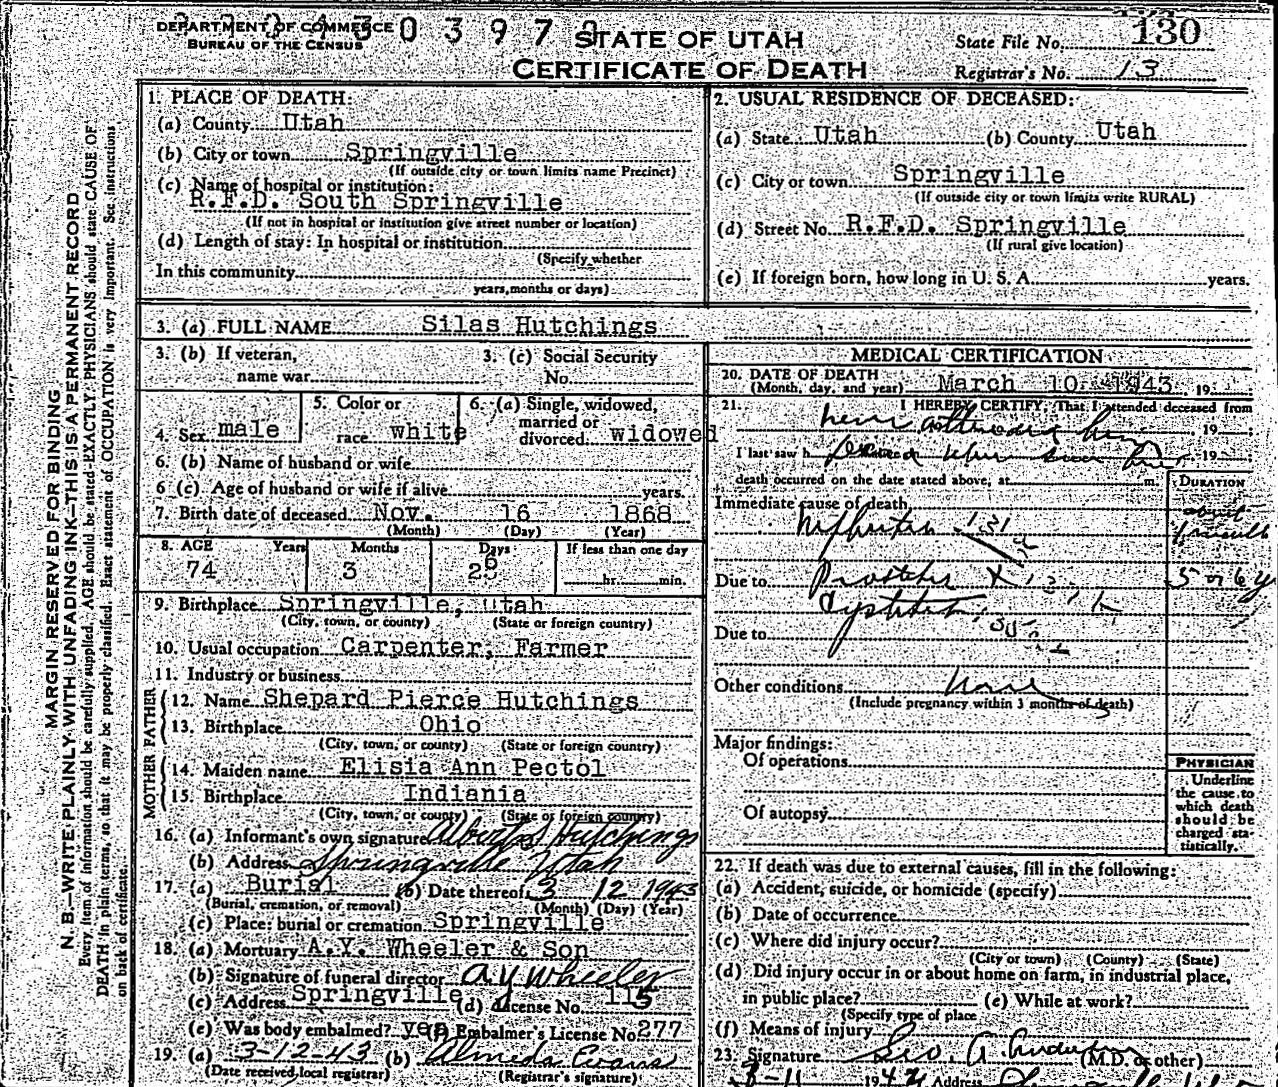 DEPARTMENT OF COMMERCE
BUREAU OF THE CENSUS
STATE OF UTAH
CERTIFICATE OF DEATH
State File No. 130
Registrar's No. 13
MARGIN RESERVED FOR BINDING
N. B.—WRITE PLAINLY WITH UNFADING INK—THIS IS A PERMANENT RECORD
Every item of information should be carefully supplied. AGE should be stated EXACTLY. PHYSICIANS should state CAUSE OF
DEATH in plain terms, so that it may be properly classified. Exact statement of OCCUPATION is very important. See instructions
on back of certificate.
1. PLACE OF DEATH:
(a) County Utah
(b) City or town Springville
(If outside city or town limits name Precinct)
(c) Name of hospital or institution:
R.F.D. South Springville
(If not in hospital or institution give street number or location)
(d) Length of stay: In hospital or institution
(Specify whether
In this community
years, months or days)
2. USUAL RESIDENCE OF DECEASED:
(a) State Utah (b) County Utah
(c) City or town Springville
(If outside city or town limits write RURAL)
(d) Street No. R.F.D. Springville
(If rural give location)
(e) If foreign born, how long in U. S. A. years.
3. (a) FULL NAME Silas Hutchings
3. (b) If veteran,
name war
3. (c) Social Security
No.
4. Sex male
5. Color or
race white
6. (a) Single, widowed,
married or
divorced widowed
6. (b) Name of husband or wife
6 (c) Age of husband or wife if alive years.
7. Birth date of deceased Nov. 16 1868
(Month) (Day) (Year)
8. AGE Years Months Days If less than one day
74 3 hr. min.
9. Birthplace Springville, Utah
(City, town, or county) (State or foreign country)
10. Usual occupation Carpenter, Farmer
11. Industry or business
FATHER
12. Name Shepard Pierce Hutchings
13. Birthplace Ohio
(City, town, or county) (State or foreign country)
MOTHER
14. Maiden name Elisia Ann Pectol
15. Birthplace Indiania
(City, town, or county) (State or foreign country)
16. (a) Informant's own signature Hutchings
(b) Address Springville Utah
17. (a) Burial (b) Date thereof 3 12 1943
(Burial, cremation, or removal) (Month) (Day) (Year)
(c) Place: burial or cremation Springville
18. (a) Mortuary A.Y. Wheeler & Son
(b) Signature of funeral director A Y Wheeler
(c) Address Springville (d) License No. 115
(e) Was body embalmed? yes (f) Embalmer's License No. 277
19. (a) 3-12-43 (b) Almeda Evans
(Date received local registrar) (Registrar's signature)
MEDICAL CERTIFICATION
20. DATE OF DEATH
(Month, day, and year) March 10 1943, 19
21. I HEREBY CERTIFY, That I attended deceased from
never attended him, 19
I last saw h 19
death occurred on the date stated above, at m.
DURATION
Immediate cause of death
Nephritis 131
about
Due to Prostatis 5 or 6 y
Cystitis
Due to
Other conditions None
(Include pregnancy within 3 months of death)
Major findings:
Of operations
Of autopsy
PHYSICIAN
Underline
the cause to
which death
should be
charged sta-
tistically.
22. If death was due to external causes, fill in the following:
(a) Accident, suicide, or homicide (specify)
(b) Date of occurrence
(c) Where did injury occur?
(City or town) (County) (State)
(d) Did injury occur in or about home on farm, in industrial place,
in public place? (e) While at work?
(Specify type of place
(f) Means of injury
23. Signature Geo. A. Anderson (M.D. or other)
3-11 19 Address